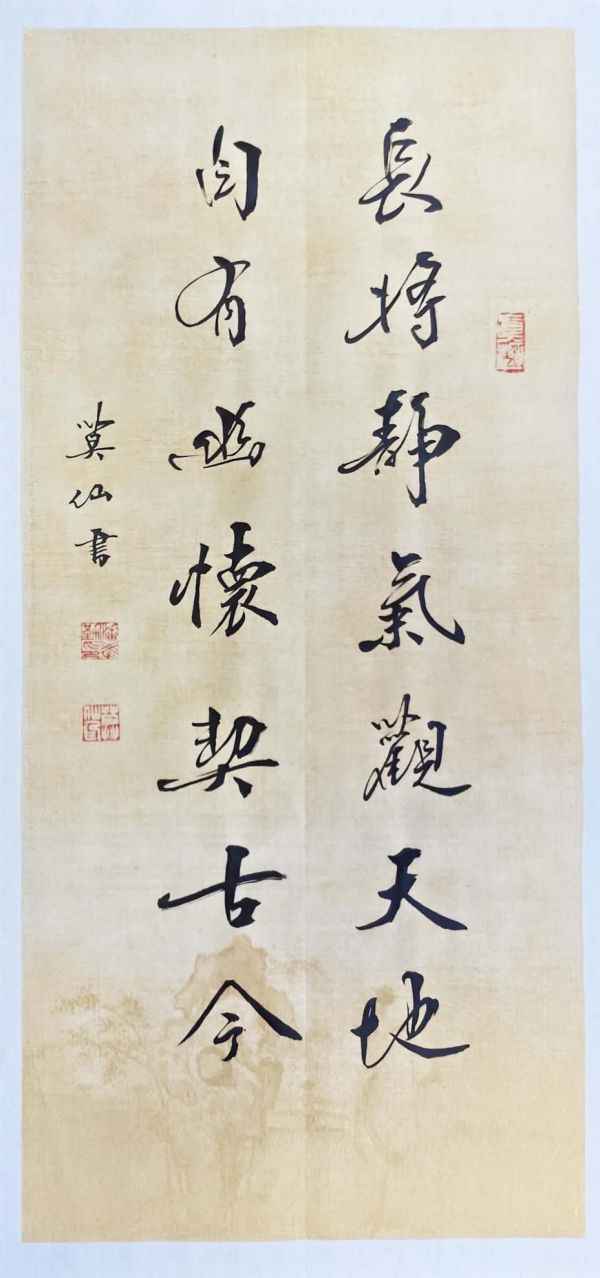 長將靜氣觀天地
自有幽懷契古今
莫仙書